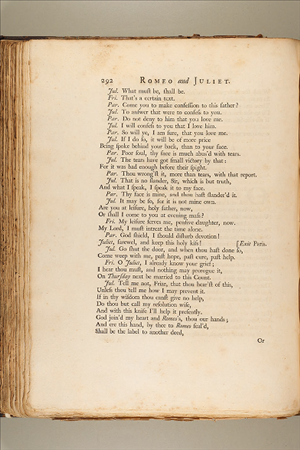 292 ROMEO and JULIET.
Jul. What must be, shall be.
Fri. That's a certain text.
Par. Come you to make confession to this father?
Jul. To answer that were to confess to you.
Par. Do not deny to him that you love me.
Jul. I will confess to you that I love him.
Par. So will ye, I am sure, that you love me.
Jul. If I do so, it will be of more price
Being spoke behind your back, than to your face.
Par. Poor soul, thy face is much abus'd with tears.
Jul. The tears have got small victory by that:
For it was bad enough before their spight.
Par. Thou wrong'st it, more than tears, with that report.
Jul. That is no slander, Sir, which is but truth,
And what I speak, I speak it to my face.
Par. Thy face is mine, and thou hast slander'd it.
Jul. It may be so, for it is not mine own.
Are you at leisure, holy father, now,
Or shall I come to you at evening mass?
Fri. My leisure serves me, pensive daughter, now.
My Lord, I must intreat the time alone.
Par. God shield, I should disturb devotion!
Juliet, farewel, and keep this holy kiss! [Exit Paris.
Jul. Go shut the door, and when thou hast done so,
Come weep with me, past hope, past cure, past help.
Fri. O Juliet, I already know your grief;
I hear thou must, and nothing may prorogue it,
On Thursday next be married to this Count.
Jul. Tell me not, Friar, that thou hear'st of this,
Unless thou tell me how I may prevent it.
If in thy wisdom thou canst give no help,
Do thou but call my resolution wise,
And with this knife I'll help it presently.
God join'd my heart and Romeo's, thou our hands;
And ere this hand, by thee to Romeo seal'd,
Shall be the label to another deed,
Or